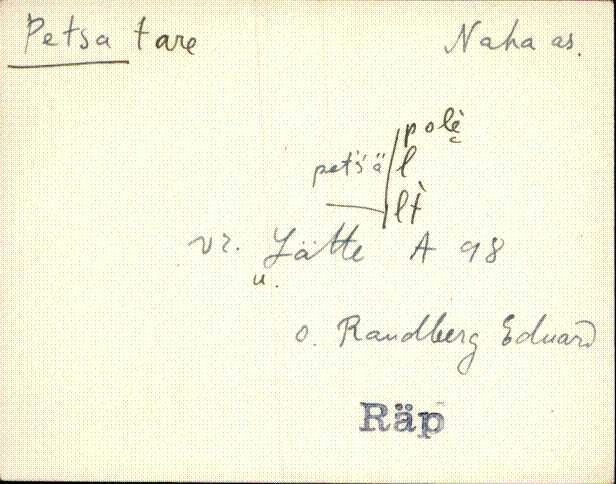 Petsa tare Naha as.
polè̬
petśä l
lt̀
vr. Jätte A 98
u.
o. Randberg Eduard
Räp